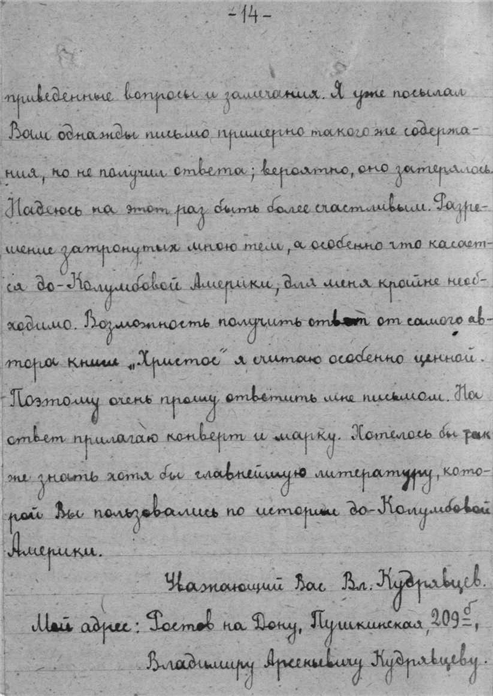 -14-
приведенные вопросы и замечания. Я уже посылал
Вам однажды письмо примерно такого же содержа-
ния, но не получил ответа; вероятно, оно затерялось.
Надеюсь на этот раз быть более счастливым. Разре-
шение затронутых мною тем, а особенно что касает-
ся до-Колумбовой Америки, для меня крайне необ-
ходимо. Возможность получить ответ от самого ав-
тора книги „Христос" я считаю особенно ценной.
Поэтому очень прошу ответить мне письмом. На
ответ прилагаю конверт и марку. Хотелось бы так
же знать хотя бы главнейшую литературу, кото-
рой Вы пользовались по истории до-Колумбовой
Америки.
Уважающий Вас Вл. Кудрявцев.
Мой адрес: Ростов на Дону, Пушкинская, 209б,
Владимиру Арсеньевичу Кудрявцеву.